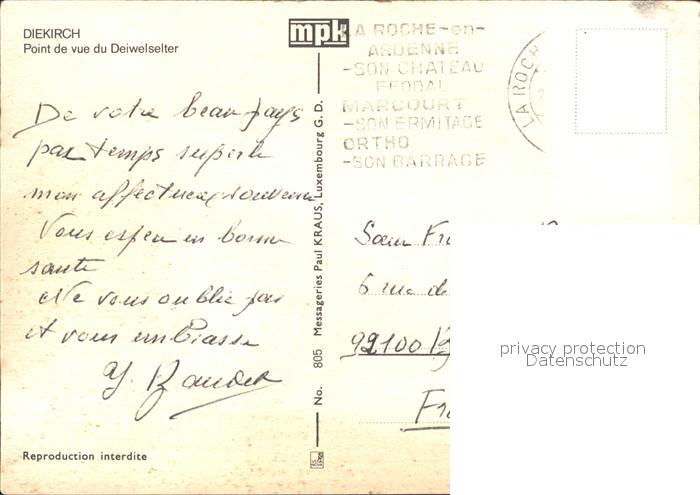 DIEKIRCH
Point de vue du Deiwelselter
mpk
LA ROCHE-en-
ARDENNE
-SON CHATEAU
FEODAL
MARCOURT
-SON ERMITAGE
ORTHO
-SON BARRAGE
LA ROCH
De votre beau pays
par temps superbe
mon affectueux souvenir
Vous espère en bonne
santé
Ne vous oublie pas
et vous embrasse
Y.
No. 805 Messageries Paul KRAUS, Luxembourg G. D.
Sœur
6 rue de
92100
Fr
privacy protection
Datenschutz
Reproduction interdite